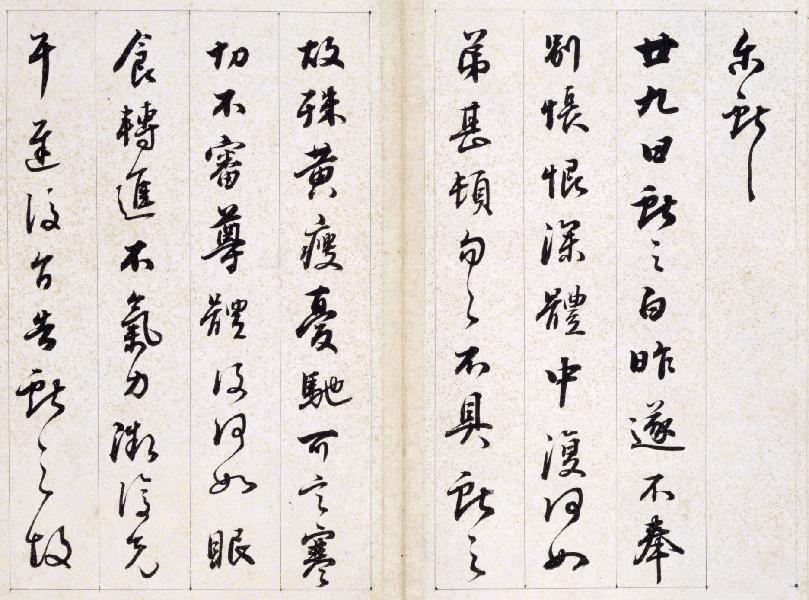 尔獻之
廿九日獻之白昨遂不奉
別悵恨深體中復何如
弟甚頓匆匆不具獻之
故殊黃瘦憂馳可言寒
切不審尊體復何如眠
食轉進不氣力漸復充
耳遲復告獻之故